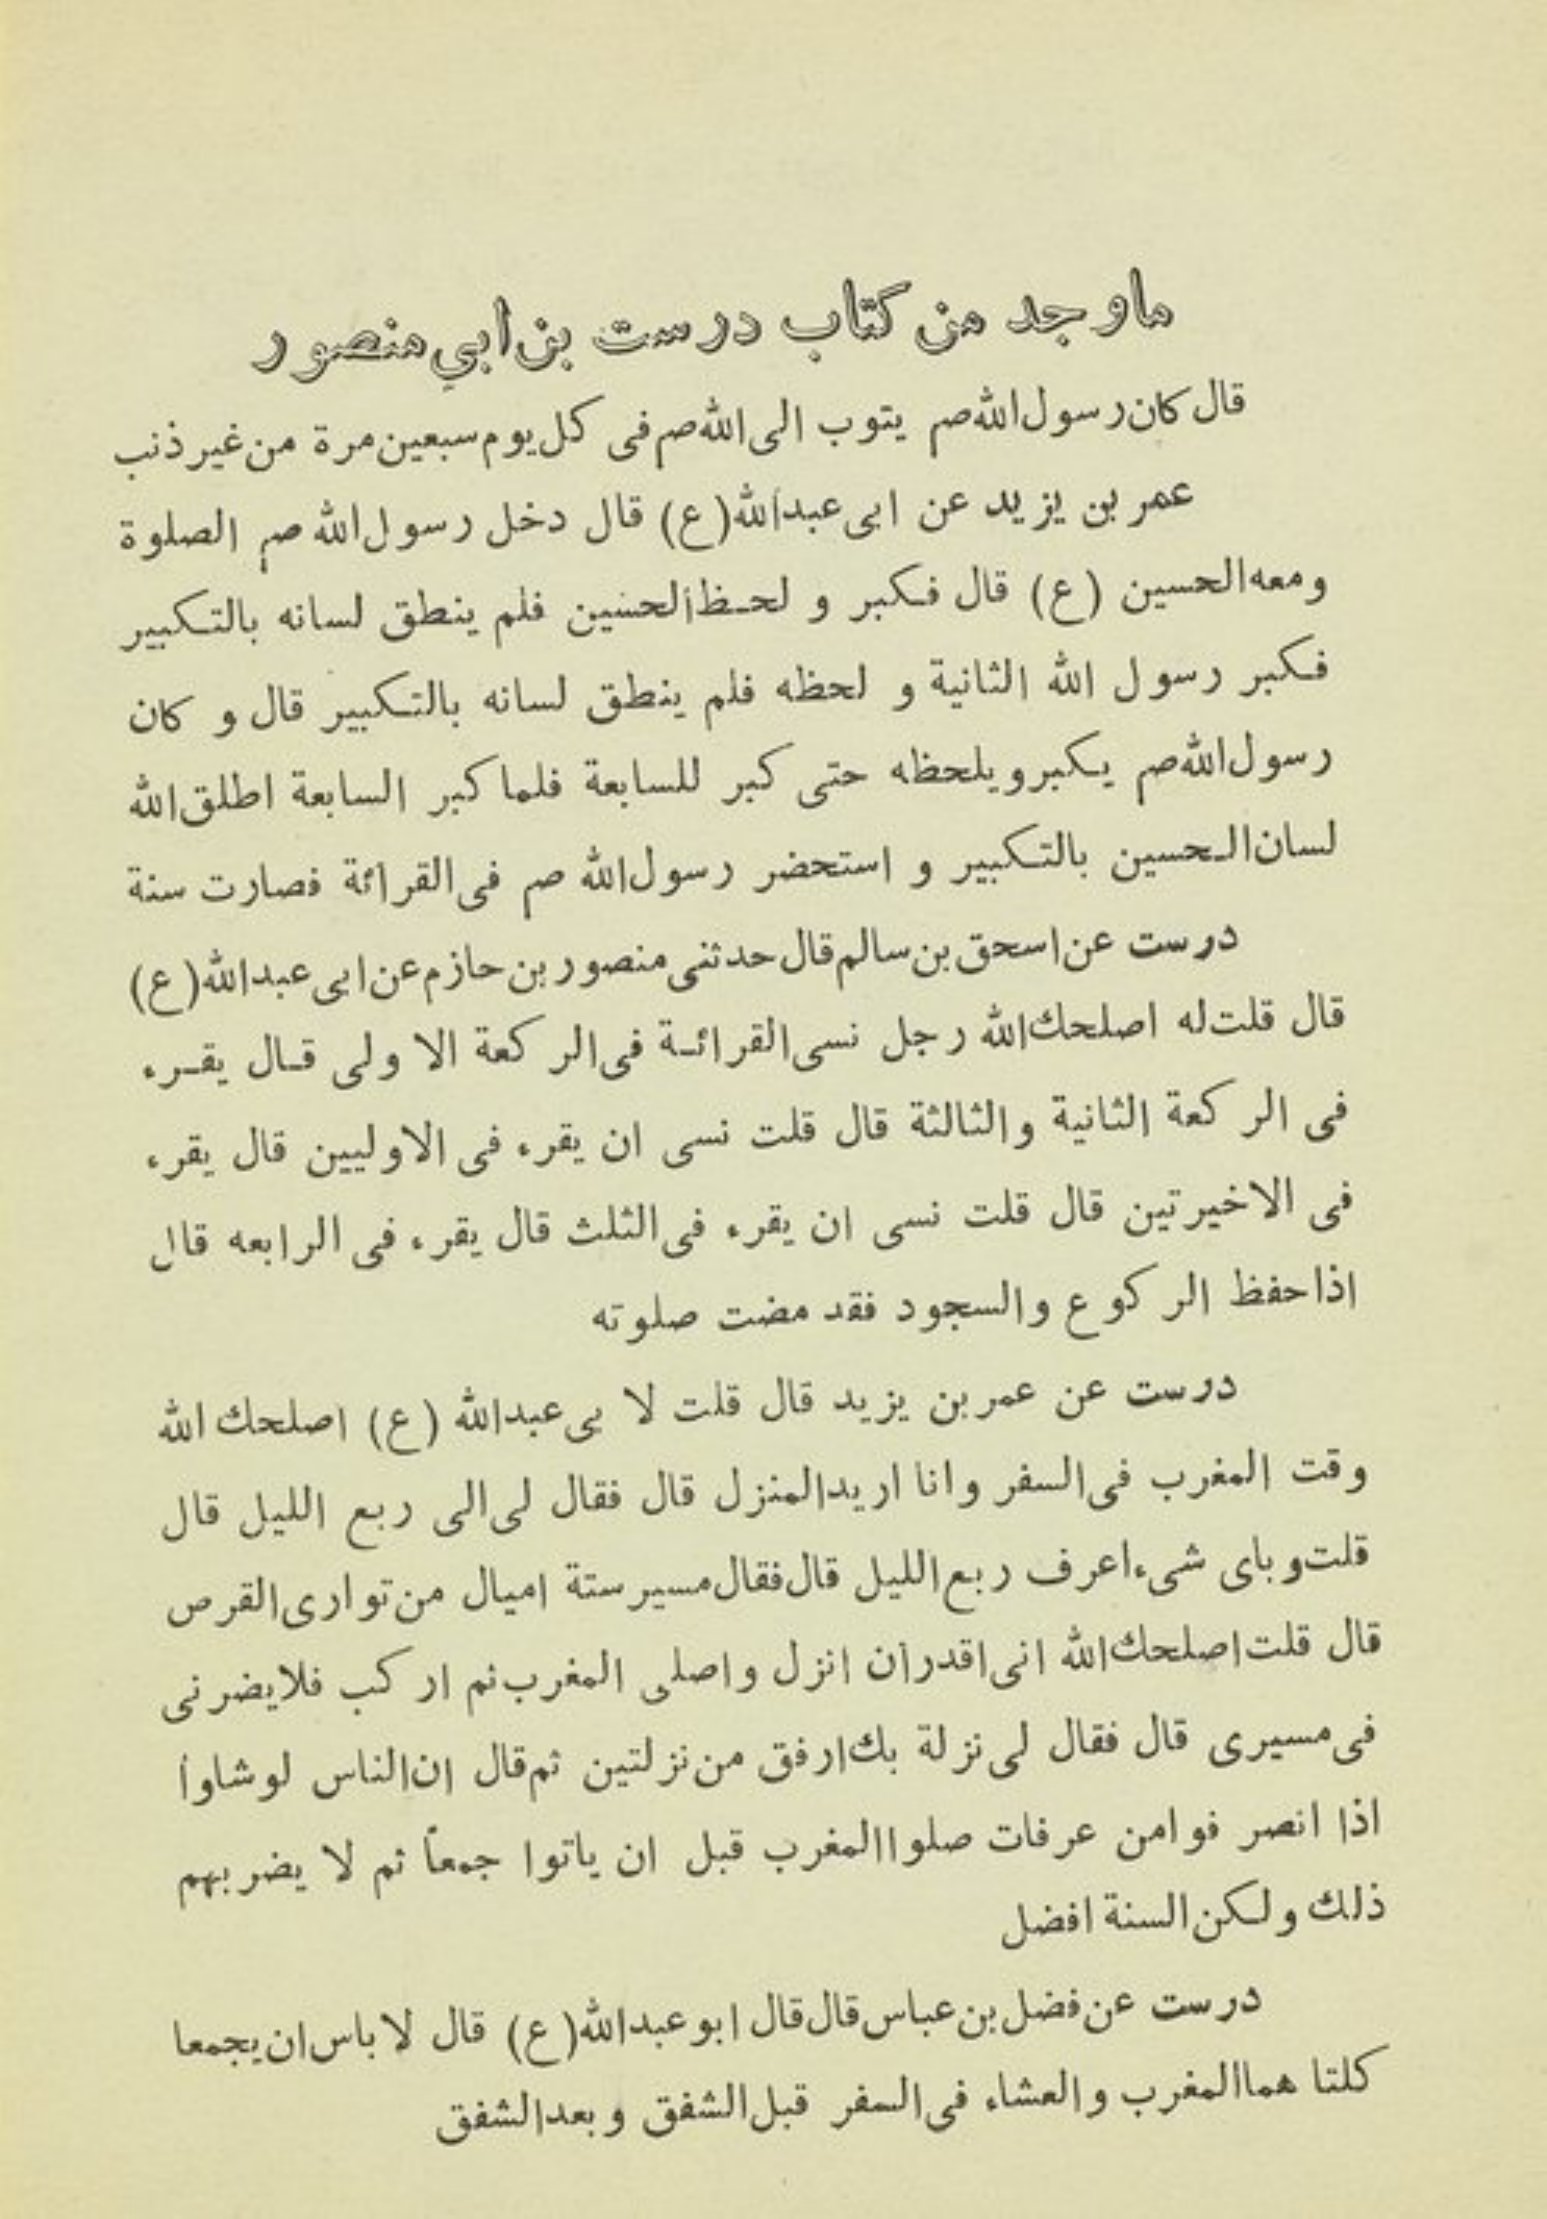 ماوجد من كتاب درست بن أبي منصور
قال كان رسول الله صم يتوب الى الله صم فى كل يوم سبعين مرة من غير ذنب
عمر بن يزيد عن ابى عبدالله (ع) قال دخل رسول الله صم الصلوة
ومعه الحسين (ع) قال فكبر و لحظ الحسين فلم ينطق لسانه بالتكبير
فكبر رسول الله الثانية و لحظه فلم ينطق لسانه بالتكبير قال و كان
رسول الله صم يكبر ويلحظه حتى كبر للسابعة فلما كبر السابعة اطلق الله
لسان الحسين بالتكبير و استحضر رسول الله صم فى القرائة فصارت سنة
درست عن اسحق بن سالم قال حدثنى منصور بن حازم عن ابى عبدالله (ع)
قال قلت له اصلحك الله رجل نسى القرائة فى الركعة الاولى قال يقرء
فى الركعة الثانية والثالثة قال قلت نسى ان يقرء فى الاوليين قال يقرء
فى الاخيرتين قال قلت نسى ان يقرء فى الثلث قال يقرء فى الرابعه قال
اذا حفظ الركوع والسجود فقد مضت صلوته
درست عن عمر بن يزيد قال قلت لا بى عبدالله (ع) اصلحك الله
وقت المغرب فى السفر وانا اريد المنزل قال فقال لى الى ربع الليل قال
قلت وباى شىء اعرف ربع الليل قال فقال مسير ستة اميال من توارى القرص
قال قلت اصلحك الله انى اقدر ان انزل واصلى المغرب ثم اركب فلا يضرنى
فى مسيرى قال فقال لى نزلة بك ارفق من نزلتين ثم قال ان الناس لوشاوا
اذا انصرفوا من عرفات صلوا المغرب قبل ان ياتوا جمعاً ثم لا يضر بهم
ذلك ولكن السنة افضل
درست عن فضل بن عباس قال قال ابو عبدالله (ع) قال لا باس ان يجمعا
كلتا هما المغرب والعشاء فى السفر قبل الشفق وبعد الشفق